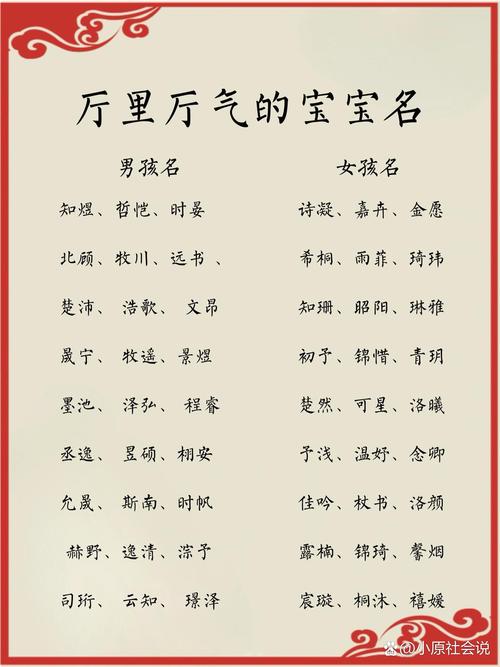 厅里厅气的宝宝名
男孩名
知煜、哲恺、时晏
北顾、牧川、远书、
楚沛、浩歌、文昂
晟宁、牧遥、景煜
墨池、泽弘、程睿
丞逸、昱硕、栩安
允晟、斯南、时帆
赫野、逸清、淙予
司珩、云知、璟泽
女孩名
诗凝、嘉卉、金愿
希桐、雨菲、琦玮
知珊、昭阳、琳雅
初予、锦惜、青玥
楚然、可星、洛曦
予浅、温妤、念卿
佳吟、杖书、洛颜
露楠、锦琦、馨烟
宸璇、桐沐、禧媛
@小原社会说